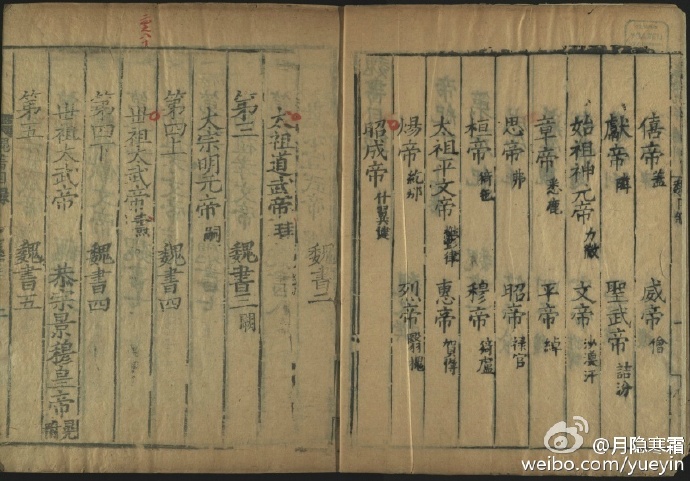 僖帝 蓋 威帝 儈
獻帝 隣 聖武帝 詰汾
始祖神元帝 力微 文帝 沙漠汗
章帝 悉鹿 平帝 綽
思帝 弗 昭帝 祿官
桓帝 猗㐌 穆帝 猗盧
太祖平文帝 鬱律 惠帝 賀傉
煬帝 紇那 烈帝 翳槐
昭成帝 什翼犍
魏書二
太祖道武帝 珪
第三 魏書三 闕
太宗明元帝 嗣
第四上 魏書四
世祖太武帝 燾
第四下 魏書四
世祖太武帝 恭宗景穆皇帝 晃
第五 魏書五
@月隐寒霜
weibo.com/yueyin